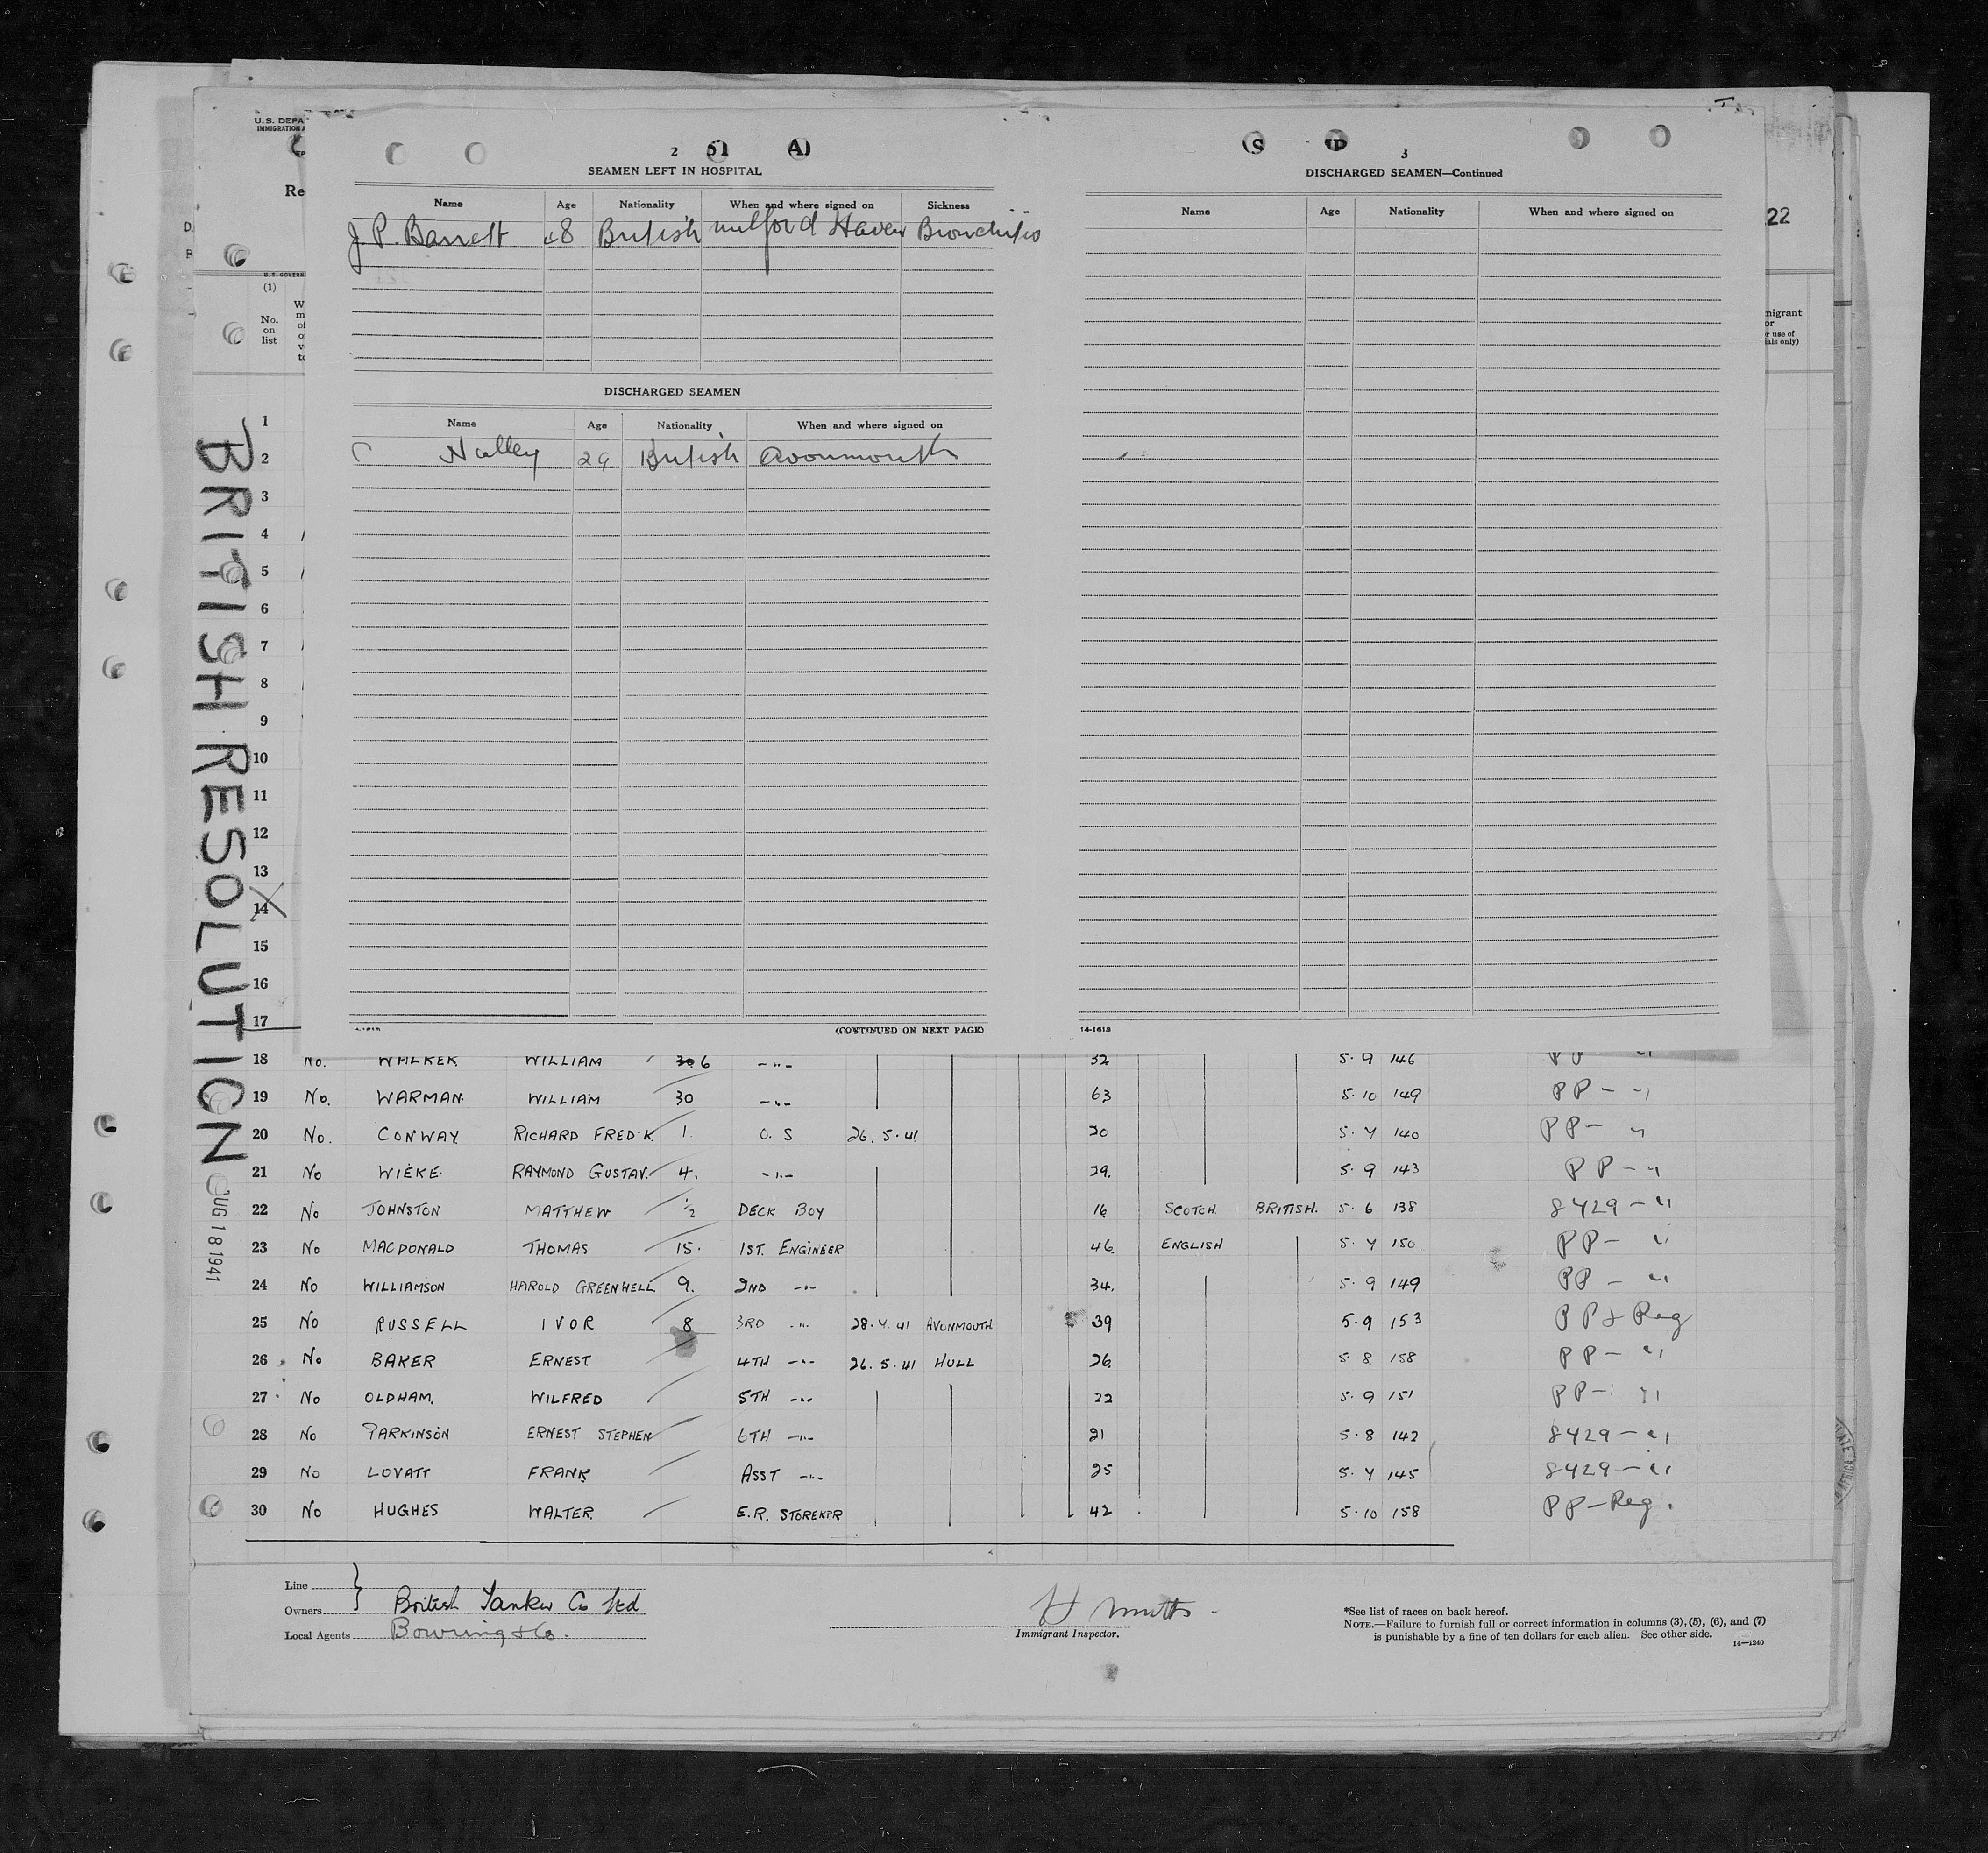 U.S. DEPA
IMMIGRATION A
Re
2 51 A)
SEAMEN LEFT IN HOSPITAL
Name Age Nationality When and where signed on Sickness
J. P. Barrett 48 British Milford Haven Bronchitis
DISCHARGED SEAMEN
Name Age Nationality When and where signed on
Nalley 29 British Avonmouth
(CONTINUED ON NEXT PAGE)
(S (P
3
DISCHARGED SEAMEN—Continued
Name Age Nationality When and where signed on
14-1613
22
migrant
or
r use of
ials only)
U.S. GOVERN
(1)
No.
on
list
BRITISH RESOLUTION
AUG 18 1941
1
2
3
4
5
6
7
8
9
10
11
12
13
14
15
16
17
18 No. WALKER WILLIAM 6 -"- 32 5.9 146 PP "
19 No. WARMAN WILLIAM 30 -"- 63 5.10 149 PP - "
20 No. CONWAY RICHARD FRED'K 1. O.S 26.5.41 20 5.7 140 PP - "
21 No WIEKE RAYMOND GUSTAV. 4. -"- 29. 5.9 143 PP - "
22 No JOHNSTON MATTHEW ½ DECK BOY 16 SCOTCH BRITISH. 5.6 138 8429 - "
23 No MACDONALD THOMAS 15. 1ST. ENGINEER 46 ENGLISH 5.7 150 PP - "
24 No WILLIAMSON HAROLD GREENHELL 9. 2ND -"- 34. 5.9 149 PP - "
25 No RUSSELL IVOR 8 3RD -"- 28.7.41 AVONMOUTH 39 5.9 153 PP + Reg
26 No BAKER ERNEST 4TH -"- 26.5.41 HULL 26 5 8 158 PP - "
27 No OLDHAM. WILFRED 5TH -"- 22 5.9 151 PP - "
28 No PARKINSON ERNEST STEPHEN 6TH -"- 21 5.8 142 8429 - "
29 No LOVATT FRANK ASST -"- 25 5.7 145 8429 - "
30 No HUGHES WALTER E.R. STOREKPR 42 5.10 158 PP - Reg.
Line
Owners British Tanker Co Ltd
Local Agents Bowring & Co.
Immigrant Inspector.
*See list of races on back hereof.
NOTE.—Failure to furnish full or correct information in columns (3), (5), (6), and (7)
is punishable by a fine of ten dollars for each alien. See other side.
14—1240